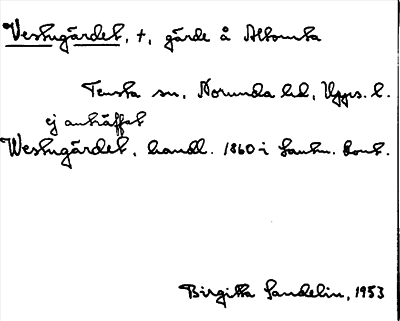 Vestugärdet, †, gärde å Altomta
Tensta sn, Norunda hd, Upps. l.
ej anträffat
Westugärdet, handl. 1860-i Lantm. kont.
Birgitta Sandelin, 1953